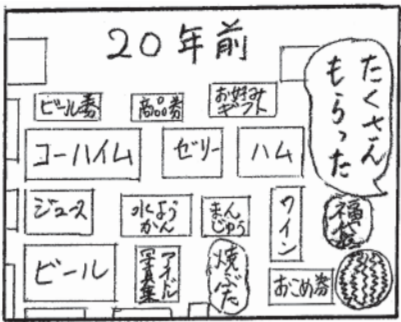 20年前
たくさん
もらった
ビール券
商品券
お好み
ギフト
コーハイム
ゼリー
ハム
ジュース
水よう
かん
まん
じゅう
ワイン
福袋
ビール
アイドル
写真集
焼ぶた
おこめ券